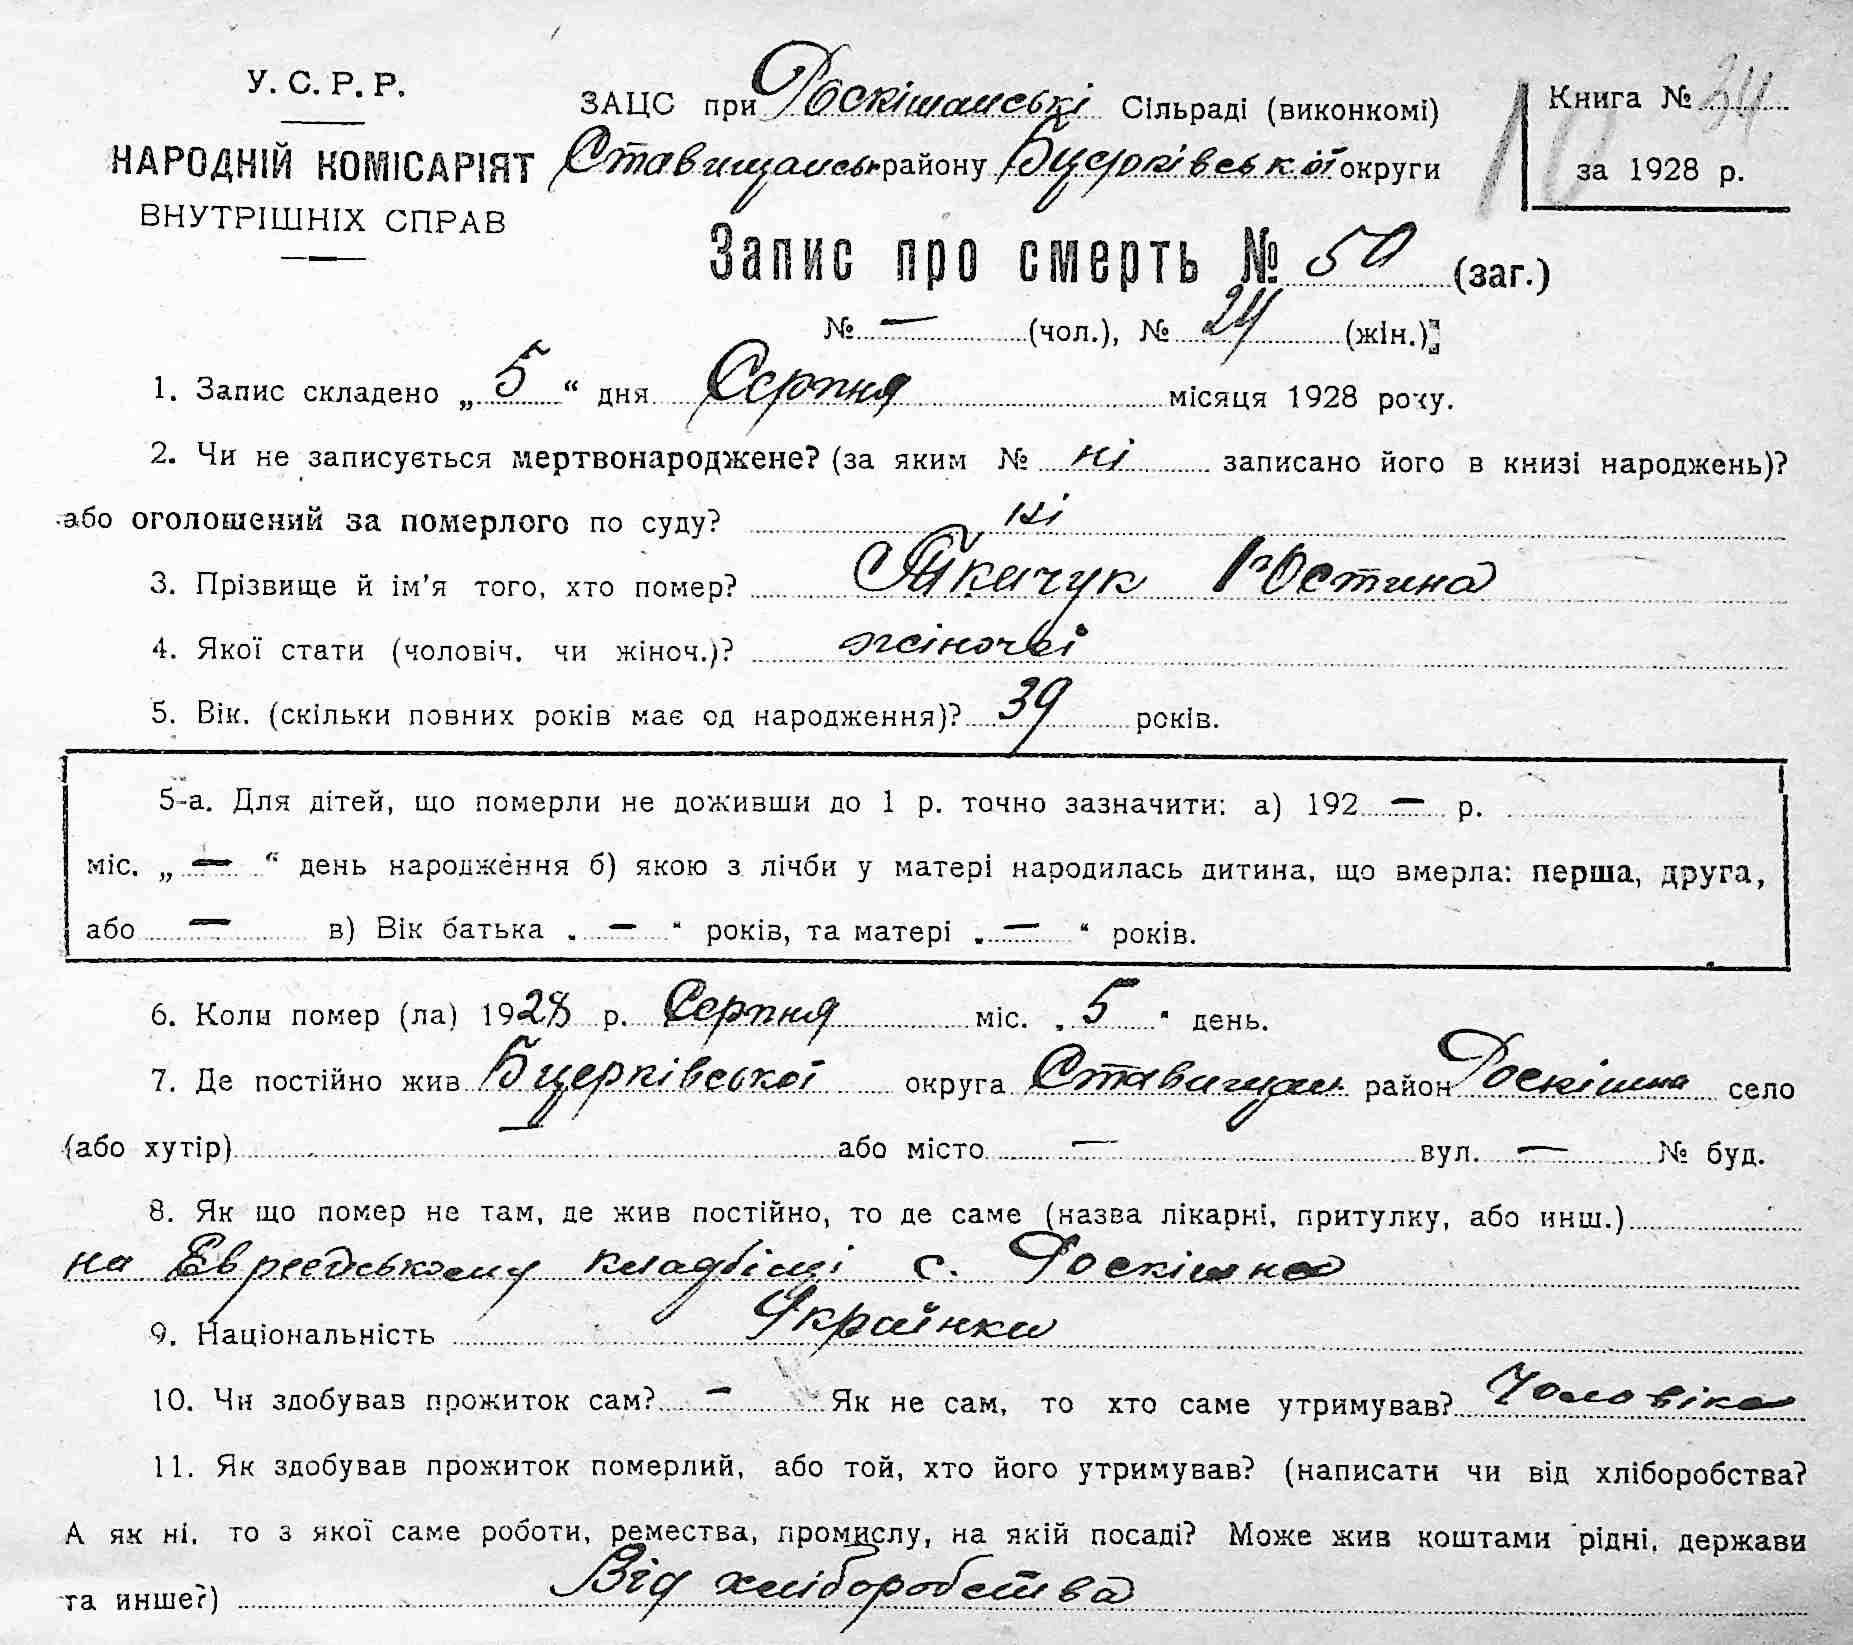 У. С. Р. Р.
НАРОДНІЙ КОМІСАРІЯТ
ВНУТРІШНІХ СПРАВ
ЗАЦС при Роскішанські Сільраді (виконкомі)
Ставищансь району Бцерківської округи
Книга № 24
за 1928 р.
10
Запис про смерть № 50 (заг.)
№ — (чол.), № 24 (жін.)
1. Запис складено „ 5 “ дня Серпня місяця 1928 року.
2. Чи не записується мертвонароджене? (за яким № ні записано його в книзі народжень)?
або оголошений за померлого по суду? ні
3. Прізвище й ім'я того, хто помер? Ткачук Юстина
4. Якої стати (чоловіч. чи жіноч.)? жіночої
5. Вік. (скільки повних років має од народження)? 39 років.
5-а. Для дітей, що померли не доживши до 1 р. точно зазначити: а) 192 — р.
міс. „ — “ день народження б) якою з лічби у матері народилась дитина, що вмерла: перша, друга,
або — в) Вік батька „ — “ років, та матері „ — “ років.
6. Коли помер (ла) 1928 р. Серпня міс. „ 5 “ день.
7. Де постійно жив Бцерківської округа Ставищан. район Роскішна село
(або хутір) — або місто — вул. — № буд.
8. Як що помер не там, де жив постійно, то де саме (назва лікарні, притулку, або инш.)
на Еврейському кладбіщі с. Роскішна
9. Національність Українка
10. Чи здобував прожиток сам? — Як не сам, то хто саме утримував? Чоловіка
11. Як здобував прожиток померлий, або той, хто його утримував? (написати чи від хліборобства?
А як ні, то з якої саме роботи, ремества, промислу, на якій посаді? Може жив коштами рідні, держави
та инше?) Від хліборобства